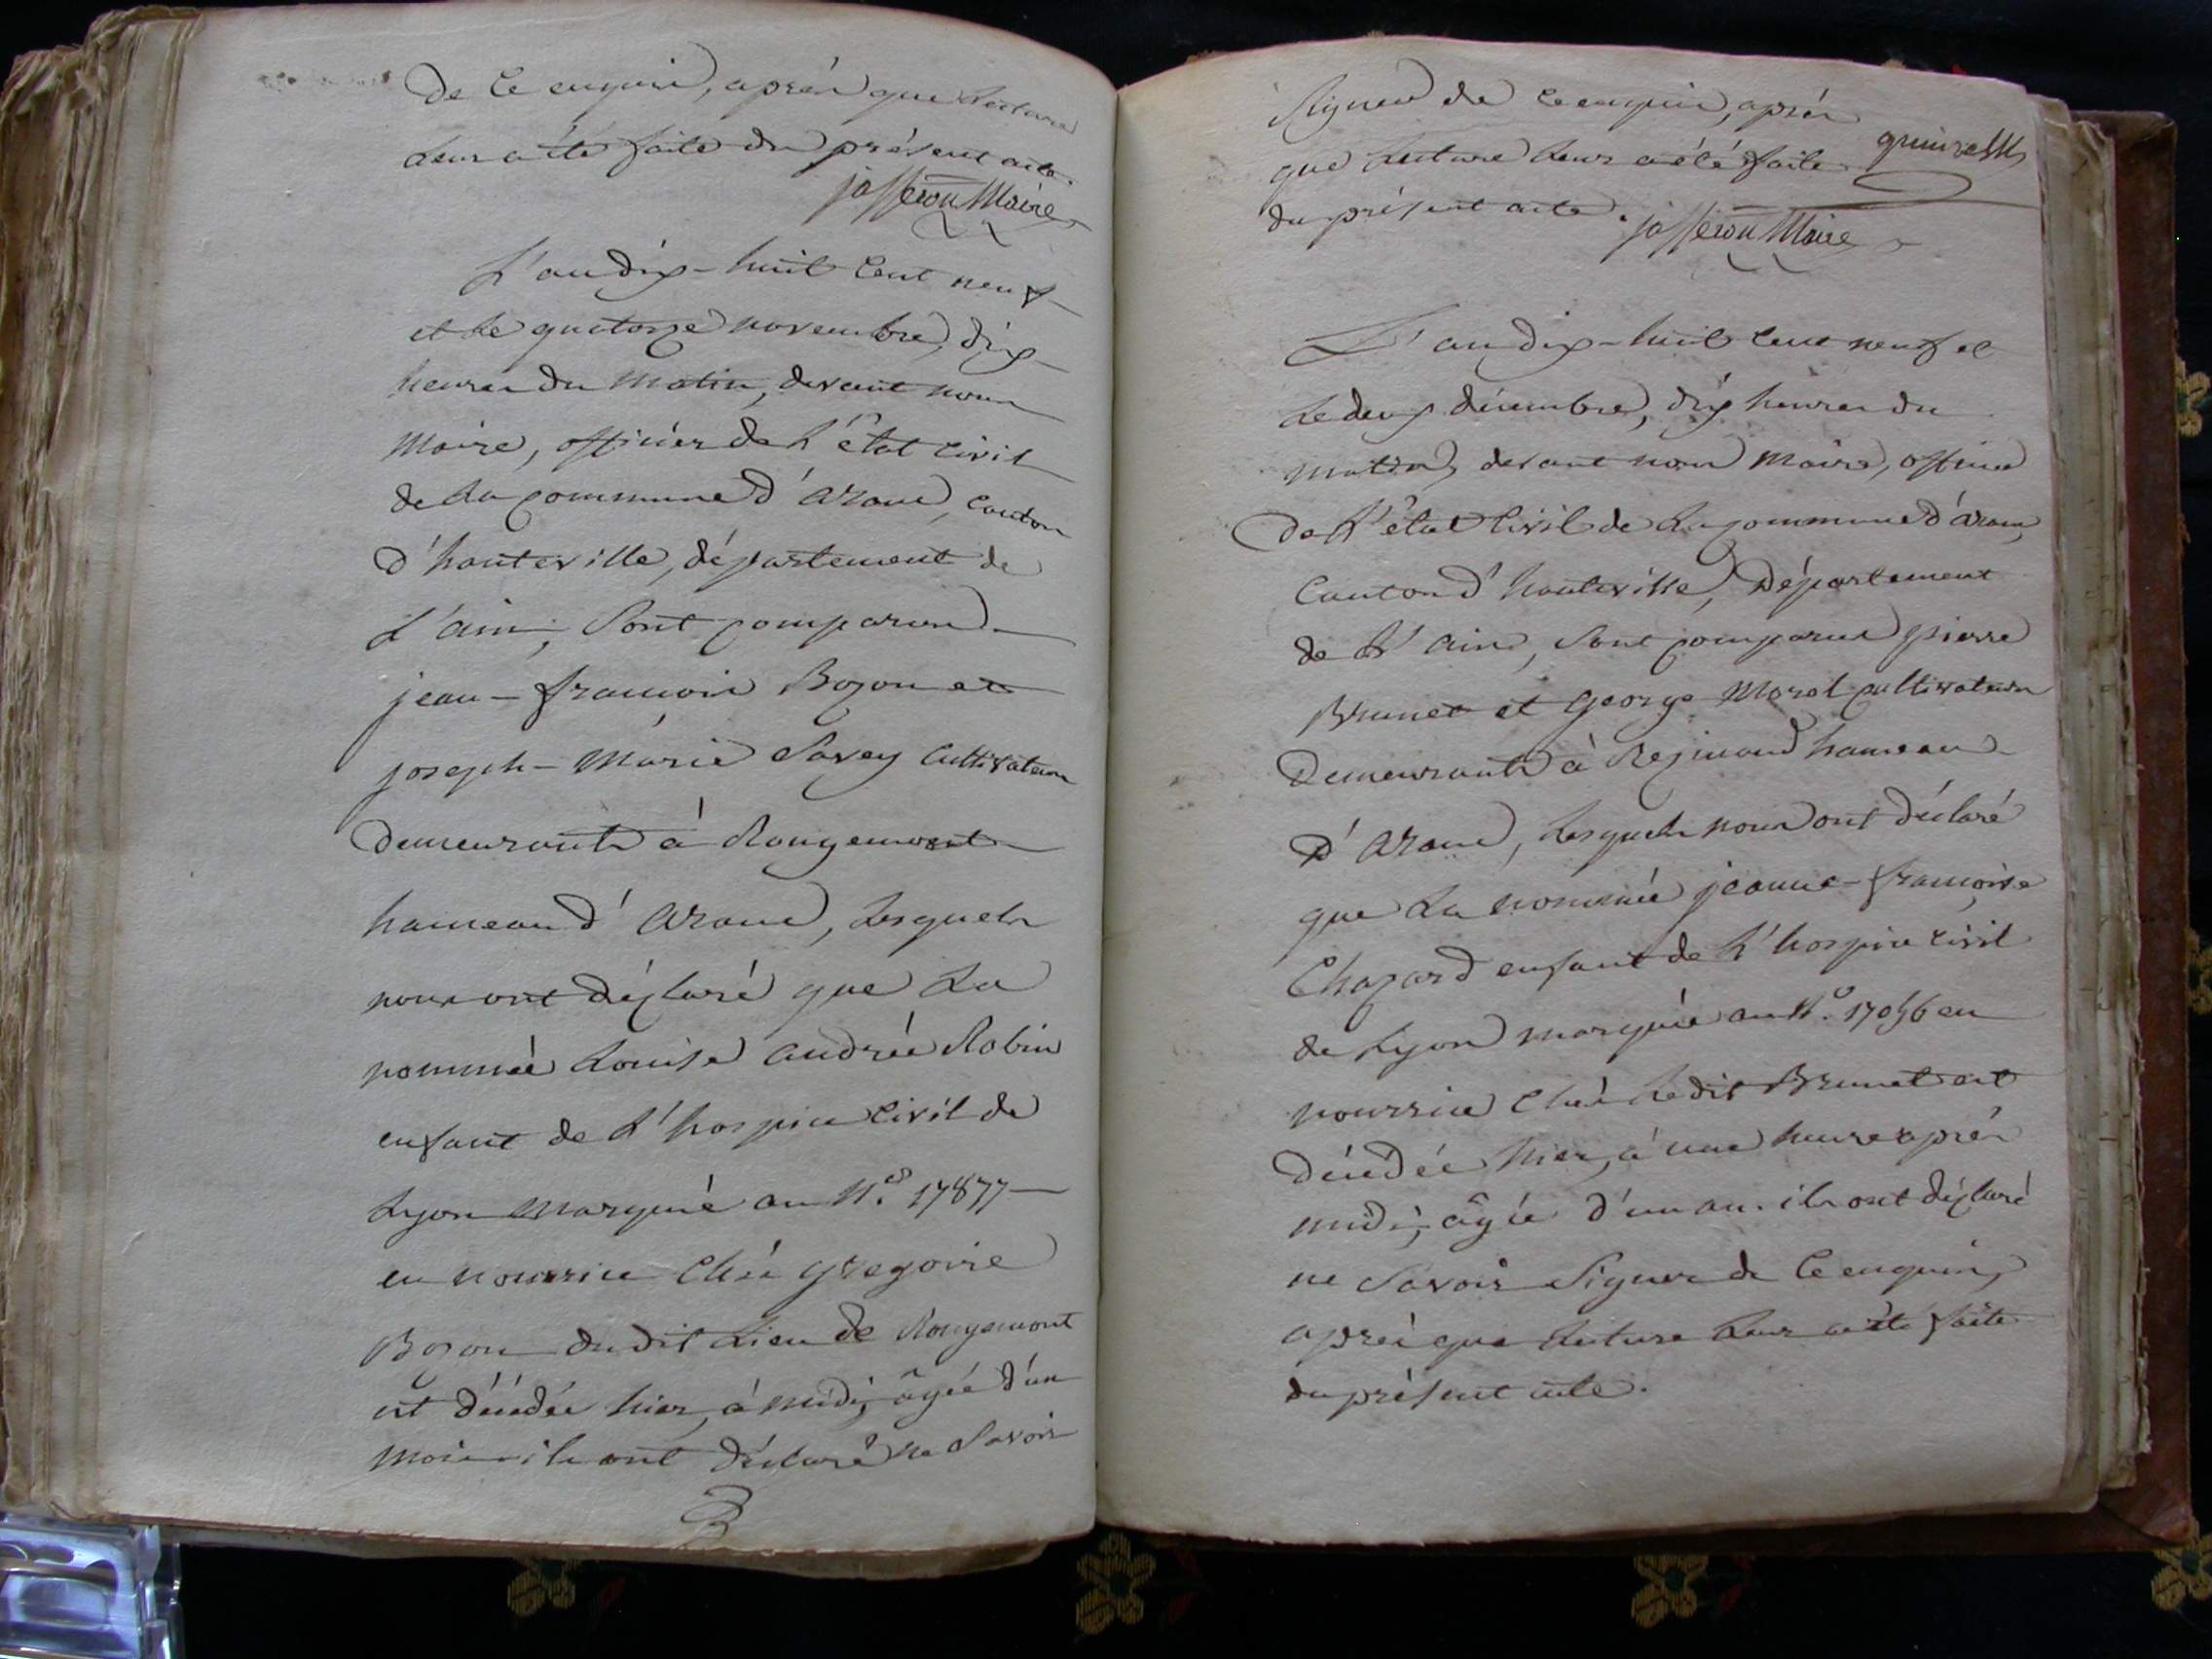 de ce enquis, après que lecture
leur a été faite du présent acte.
josseron Maire
L'an dix-huit cent neuf
et le quatorze novembre, dix
heures du matin, devant nous
Maire, officier de l'état civil
de la commune d'arane, canton
d'hauteville, département de
l'ain, sont comparus
jean-francois Bozon et
joseph-Marie Savey cultivateurs
demeurants à Rougemont
hameau d'arane, lesquels
nous ont déclaré que la
nommée Louise andrée Robin
enfant de l'hospice civil de
Lyon marquée au N.º 17877
en nourrice chés gregoire
Bozon du dit Lieu de Rougemont
est décédée hier, à midi, âgée d'un
mois. ils ont déclaré ne savoir
signer de ce enquis, après
que lecture leur a été faite
du présent acte.
josseron Maire
L'an dix-huit cent neuf et
le deux décembre, dix heures du
matin, devant nous Maire, officier
de l'état civil de la commune d'arane,
canton d'hauteville, Département
de l'ain, sont comparus pierre
Brunet et george Morel cultivateurs
demeurants à Resinand hameau
d'arane, lesquels nous ont déclaré
que la nommée jeanne-françoise
Chapard enfant de l'hospice civil
de Lyon marquée au N.º 17056 en
nourrice chés le dit Brunet est
décédée hier, à une heure après
midi, âgée d'un an. ils ont déclaré
ne savoir signer de ce enquis,
après que lecture leur a été faite
du présent acte.